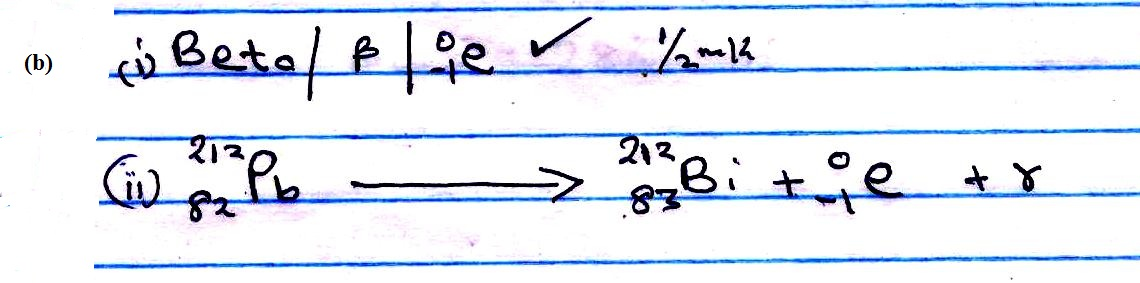 (b) (i) Beta / β / ⁰₋₁e ✓ ½ mk
(ii) ²¹²₈₂Pb ⟶ ²¹²₈₃Bi + ⁰₋₁e + γ